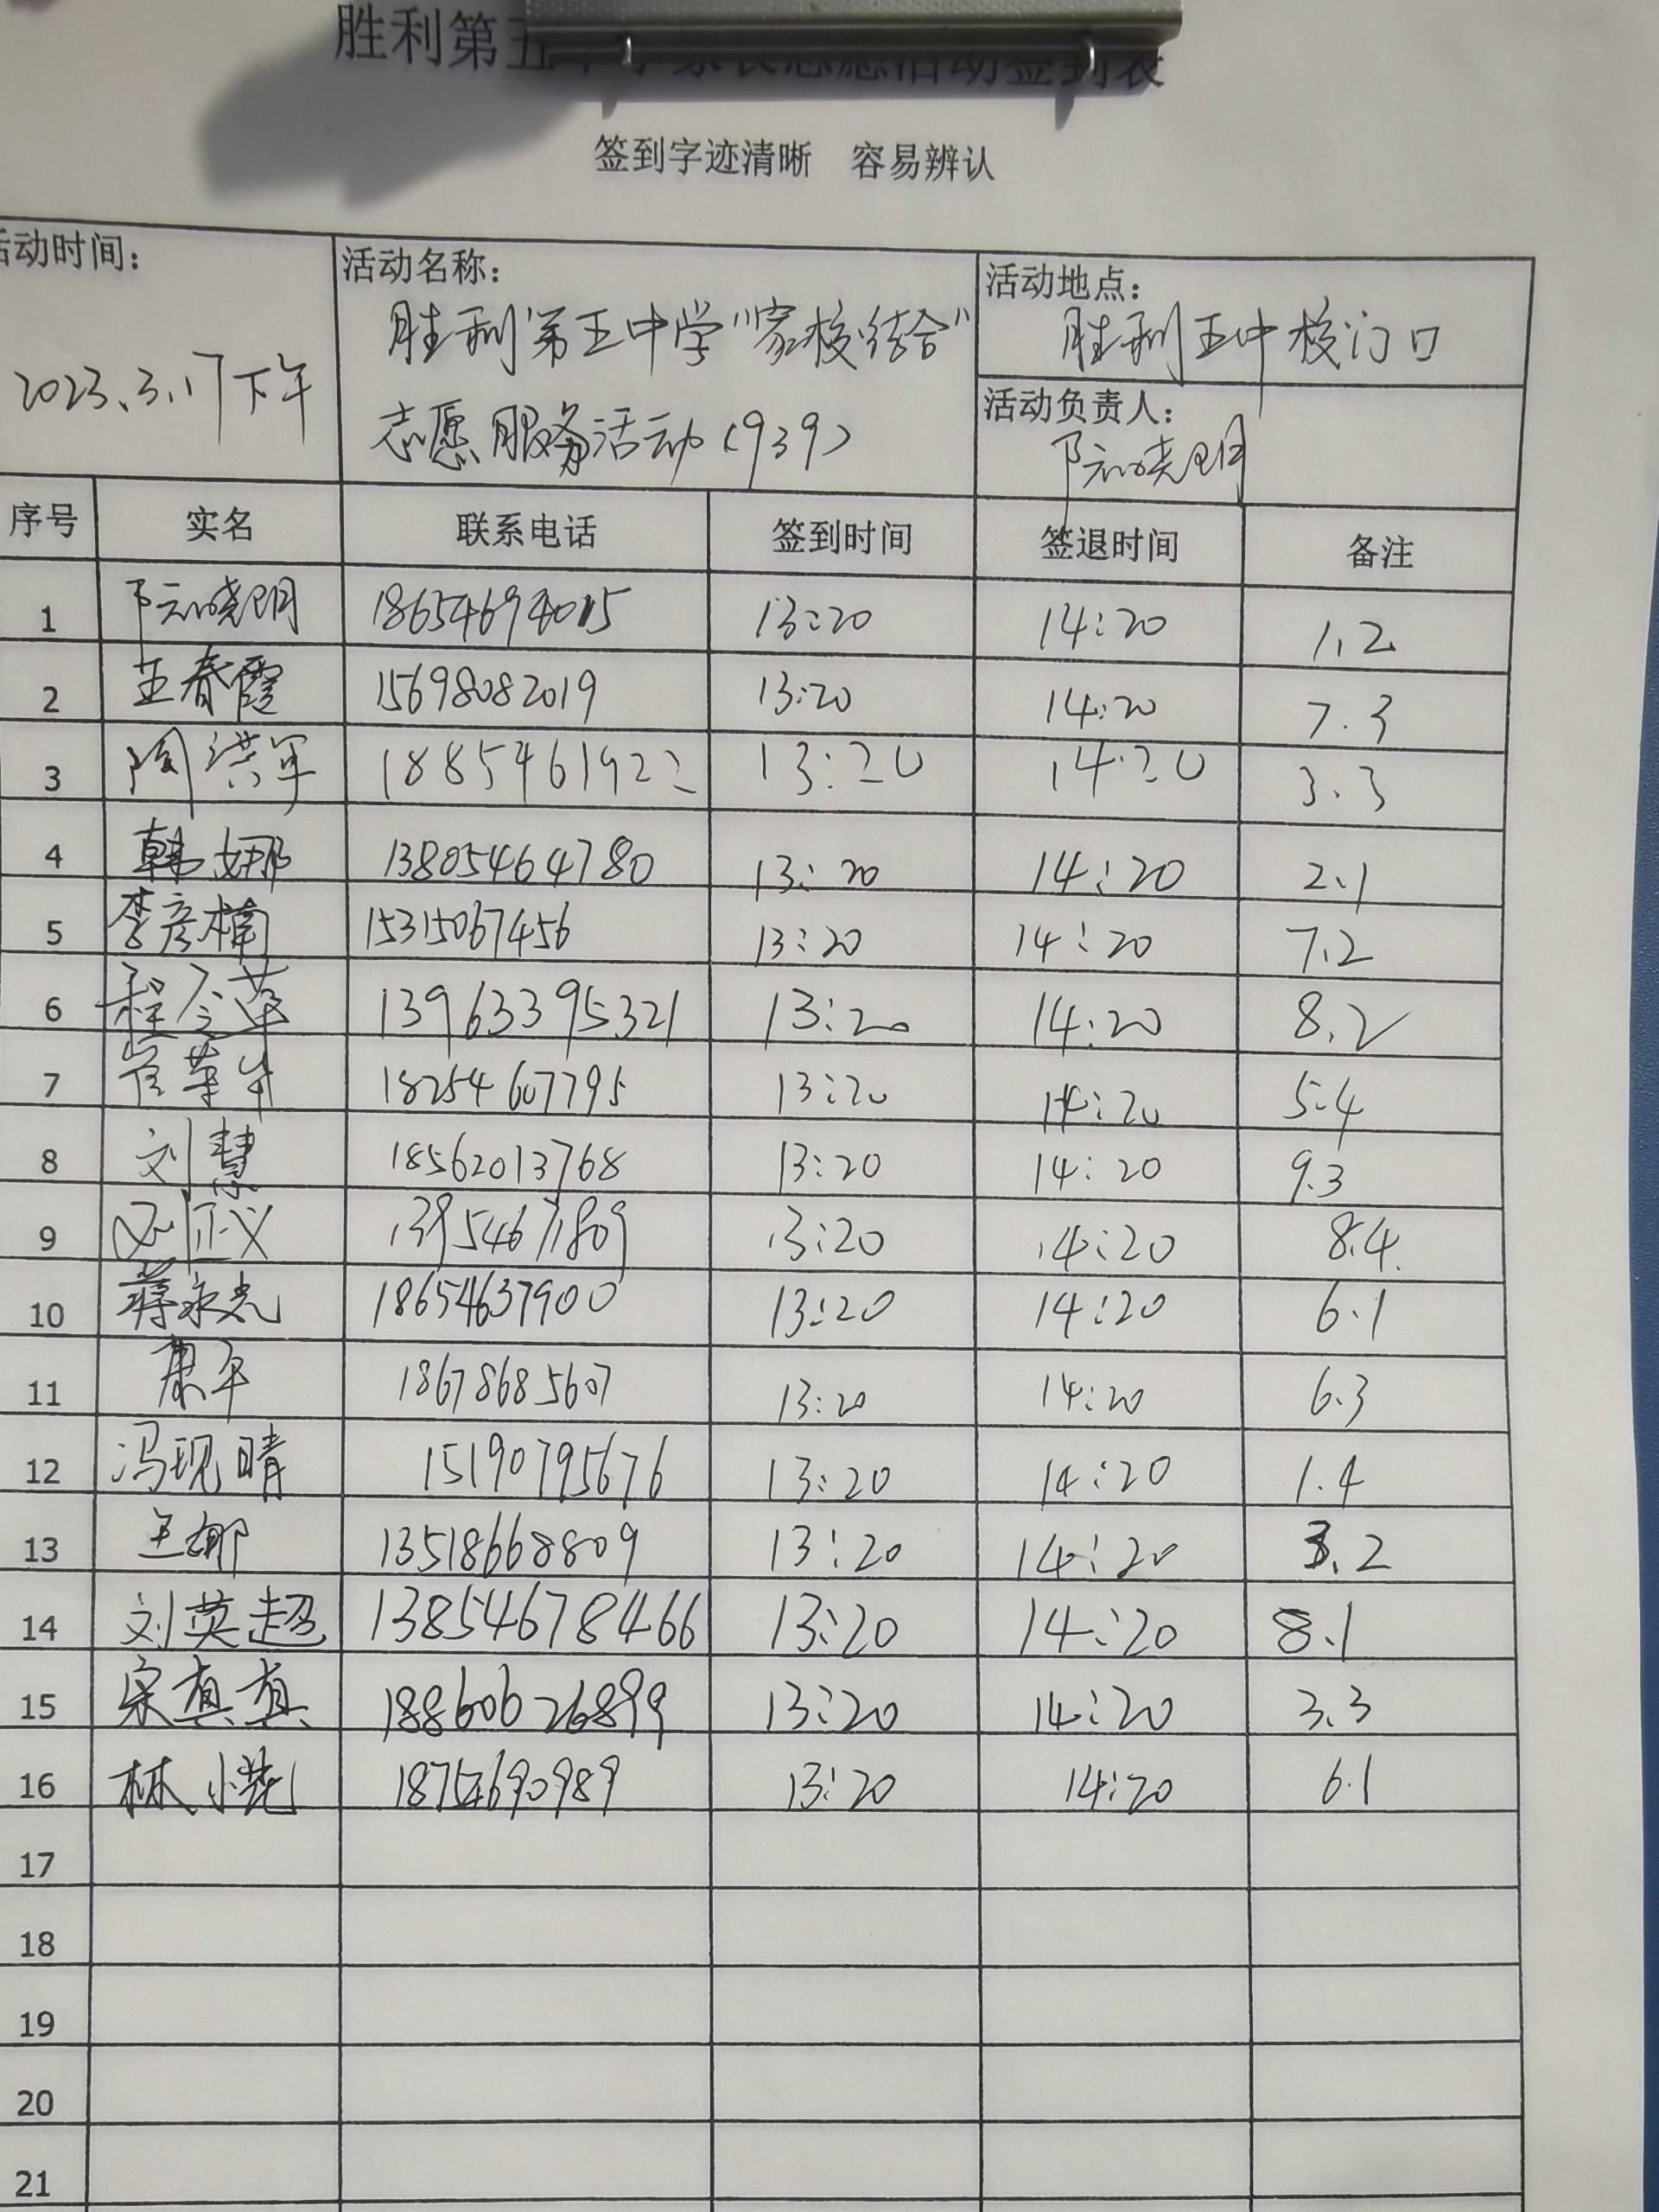 胜利第五中学家长志愿活动签到表
签到字迹清晰 容易辨认
活动时间： 活动名称： 活动地点：
胜利第五中学“家校结合” 胜利五中校门口
2023.3.17下午 活动负责人：
志愿服务活动（939） 陈晓明
序号 实名 联系电话 签到时间 签退时间 备注
1 陈晓明 13:20 14:20 1.2
2 王春霞 15698082019 13:20 14:20 7.3
3 陶洪军 18854619222 13:20 14:20 3.3
4 韩娜 13805464780 13:20 14:20 2.1
5 李彦楠 15315067456 13:20 14:20 7.2
6 程令革 13963395321 13:20 14:20 8.2
7 18254607795 13:20 14:20 5.4
8 刘慧 18562013768 13:20 14:20 9.3
9 刘正义 13954671809 13:20 14:20 8.4
10 蒋永光 18654637900 13:20 14:20 6.1
11 康平 18678685607 13:20 14:20 6.3
12 冯现晴 15190795676 13:20 14:20 1.4
13 王娜 13518668809 13:20 14:20 3.2
14 刘英超 138546784466 13:20 14:20 8.1
15 宋真真 18860626899 13:20 14:20 3.3
16 林小 18754690989 13:20 14:20 6.1
17
18
19
20
21